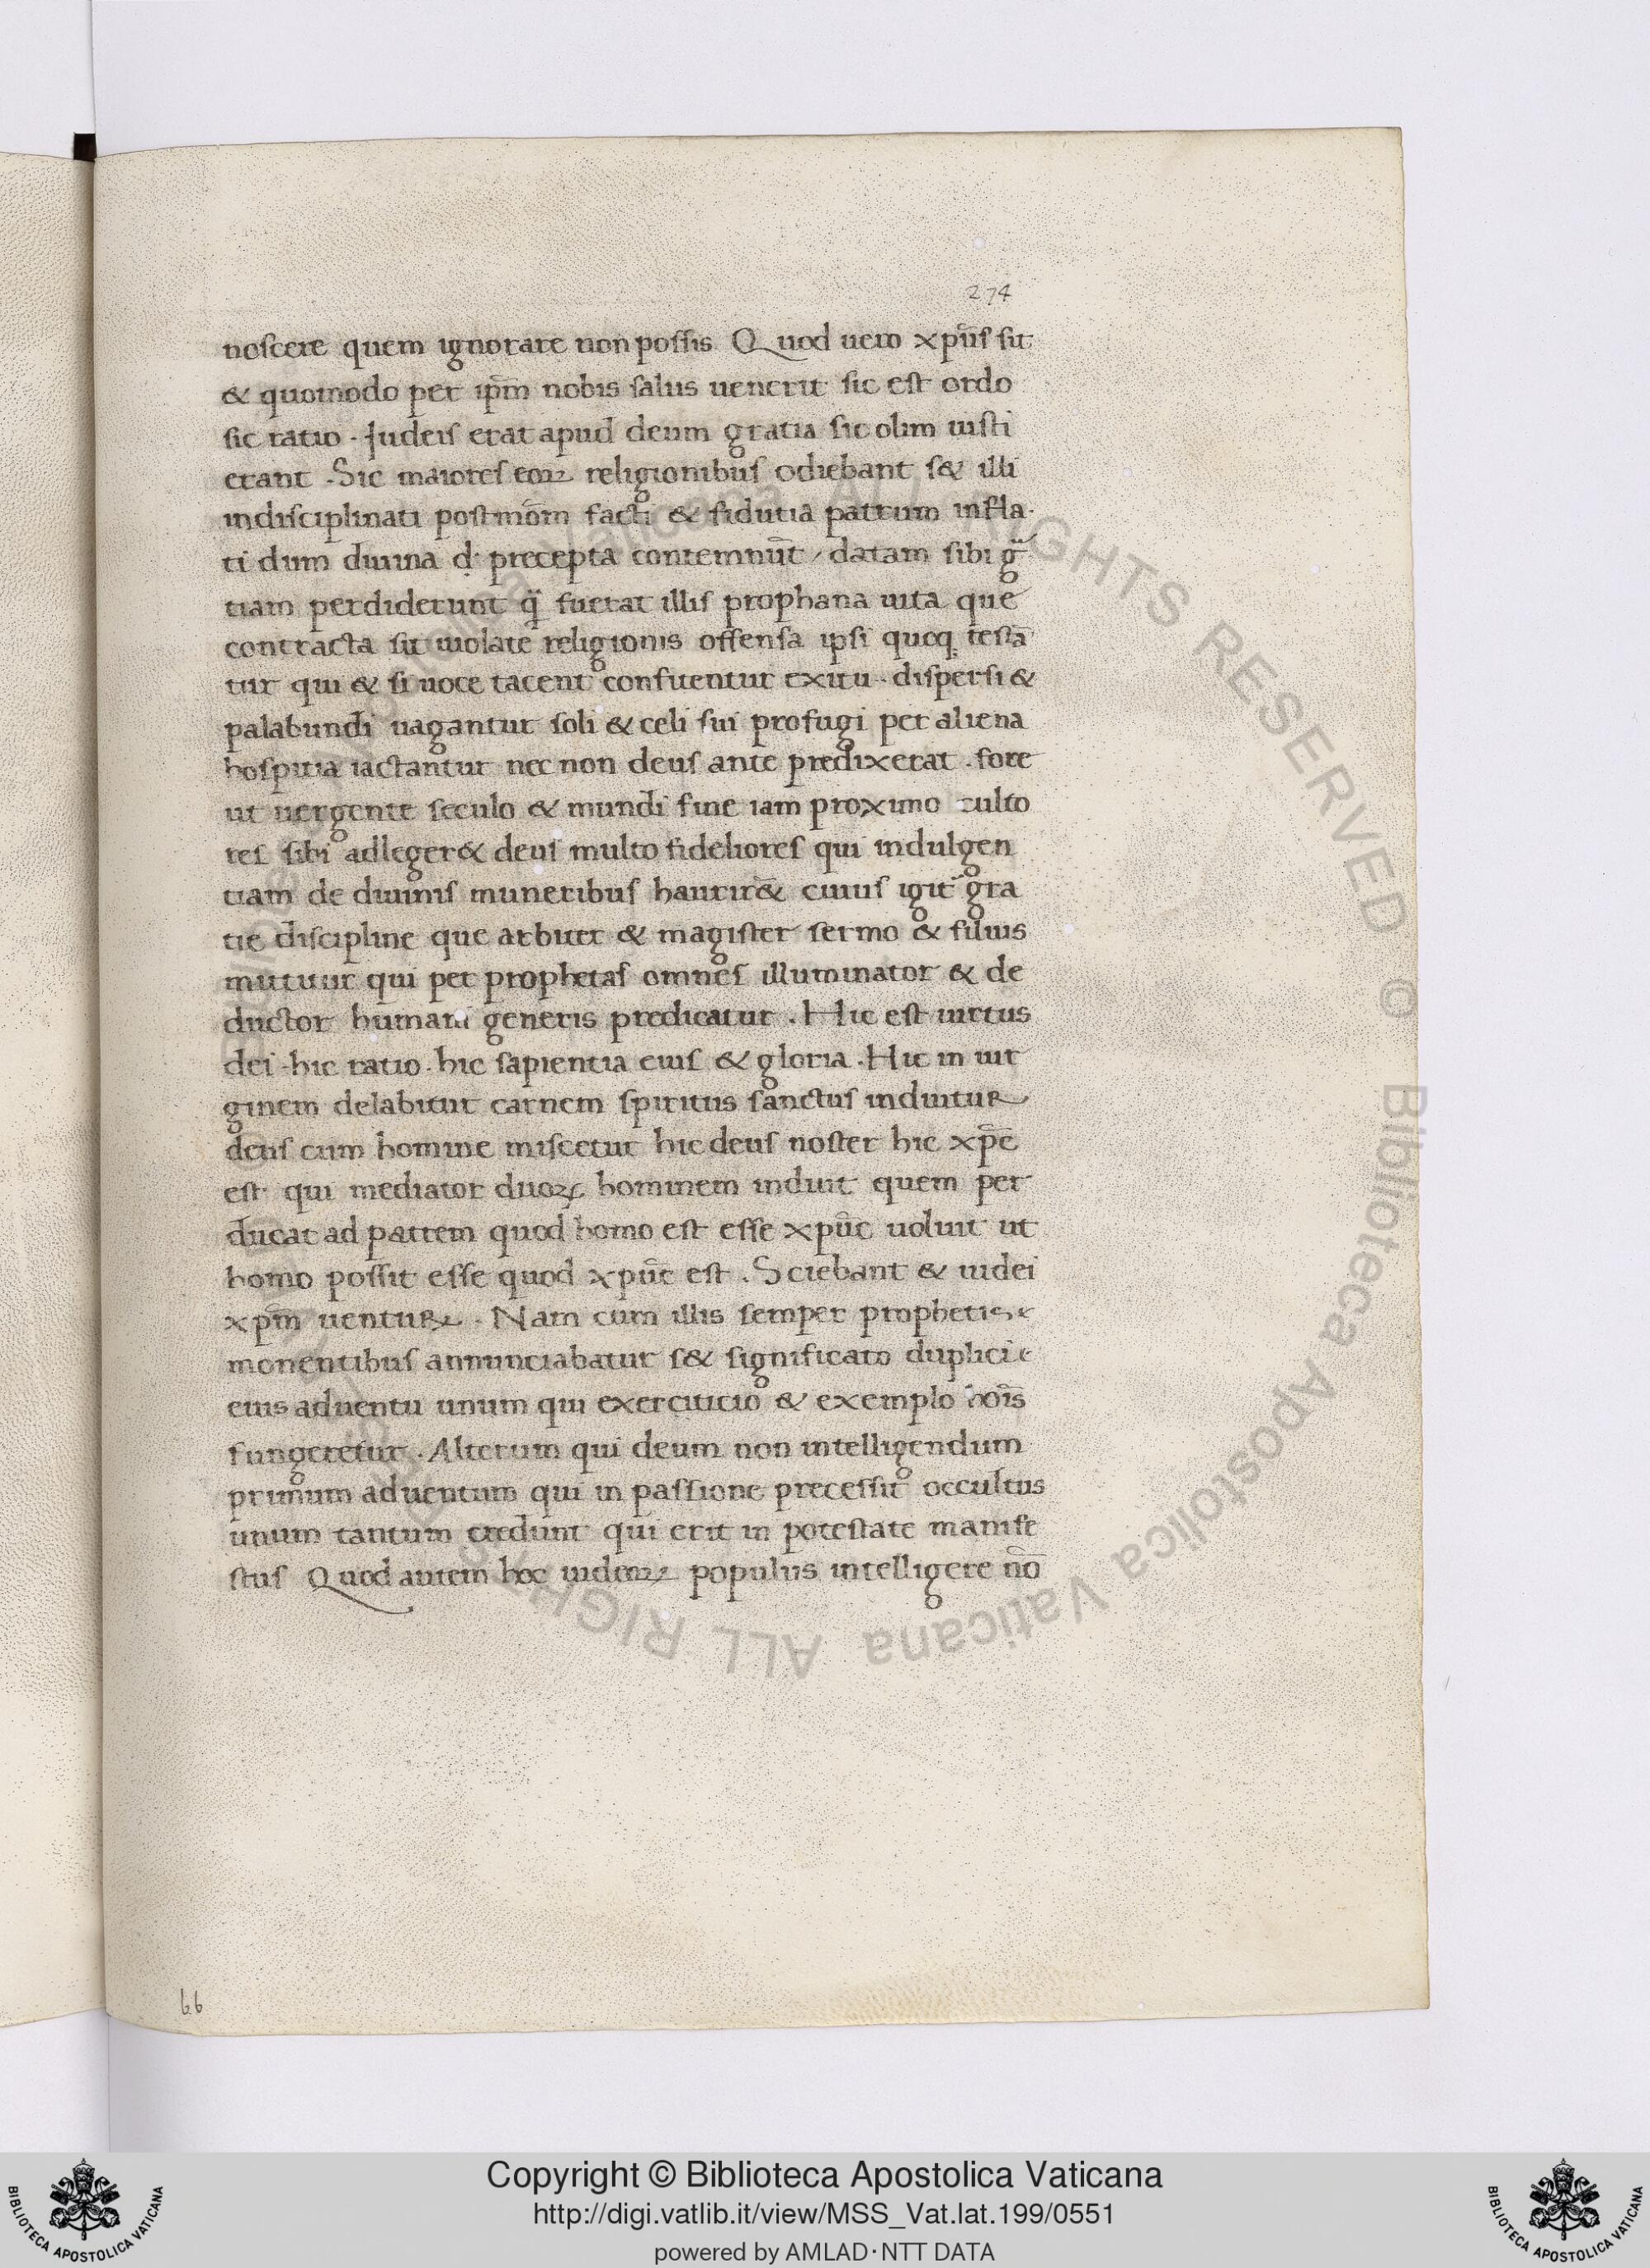 274
noscere quem ignorare non possis. Quod uero xpūs sit
& quomodo per ip̄m nobis salus uenerit sic est ordo
sic ratio. Judeis erat apud deum gratia sic olim iusti
erant. Sic maiores eoꝝ religionibus odiebant s& illi
indisciplinati postmo᷒m facti & fidutia patrum infla-
ti dum diuina d̓ precepta contemnūt / datam sibi gͣ
tiam perdiderunt qͣ fuerat illis prophana uita que
contracta sit uiolate religionis offensa ipsi quoq; testā
tur qui & si uoce tacent confitentur exitu. dispersi &
palabundi uagantur soli & celi sui profugi per aliena
hospitia iactantur nec non deus ante predixerat. fore
ut uergente seculo & mundi fine iam proximo culto
res sibi adleger& deus multo fideliores qui indulgen
tiam de diuinis muneribus haurir& cuius igit̄ gra
tie discipline que arbiter & magister sermo & filius
mittitur qui per prophetas omnes illuminator & de
ductor humani generis predicatur. Hic est uirtus
dei. hic ratio. hic sapientia eius & gloria. Hic in uir
ginem delabitur carnem spiritus sanctus induitur
deus cum homine miscetur hic deus noster hic xp̄c
est qui mediator duoꝝ hominem induit quem per
ducat ad patrem quod homo est esse xpūc uoluit ut
homo possit esse quod xpūc est. Sciebant & iudei
xpm̄ uentuꝝ. Nam cum illis semper prophetis
monentibus annunciabatur s& significato duplici
eius aduentu unum qui exerciticio & exemplo hoīs
fungeretur. Alterum qui deum non intelligendum
primum aduentum qui in passione precessit occultus
unum tantum credunt qui erit in potestate manife
stus Quod autem hoc iudeoꝝ populus intelligere nō
66
BIBLIOTECA APOSTOLICA VATICANA
Copyright © Biblioteca Apostolica Vaticana
http://digi.vatlib.it/view/MSS_Vat.lat.199/0551
powered by AMLAD·NTT DATA
BIBLIOTECA APOSTOLICA VATICANA
Biblioteca Apostolica Vaticana ALL RIGHTS RESERVED ©
Biblioteca Apostolica Vaticana ALL RIGHTS RESERVED ©